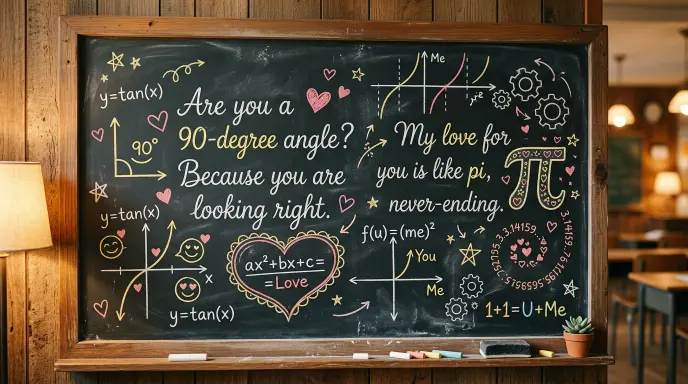 y=tan(x)
90°
y=tan(x)
x
y=tan(x)
Are you a
90-degree angle?
Because you are
looking right.
ax²+bx+c=
=Love
Me
My love for
you is like pi,
never-ending.
π
f(u)=(me)²
You
Me
3.14159
1+1=U+Me